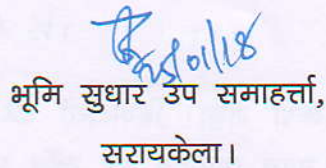 25/01/18
भूमि सुधार उप समाहर्त्ता,
सरायकेला।